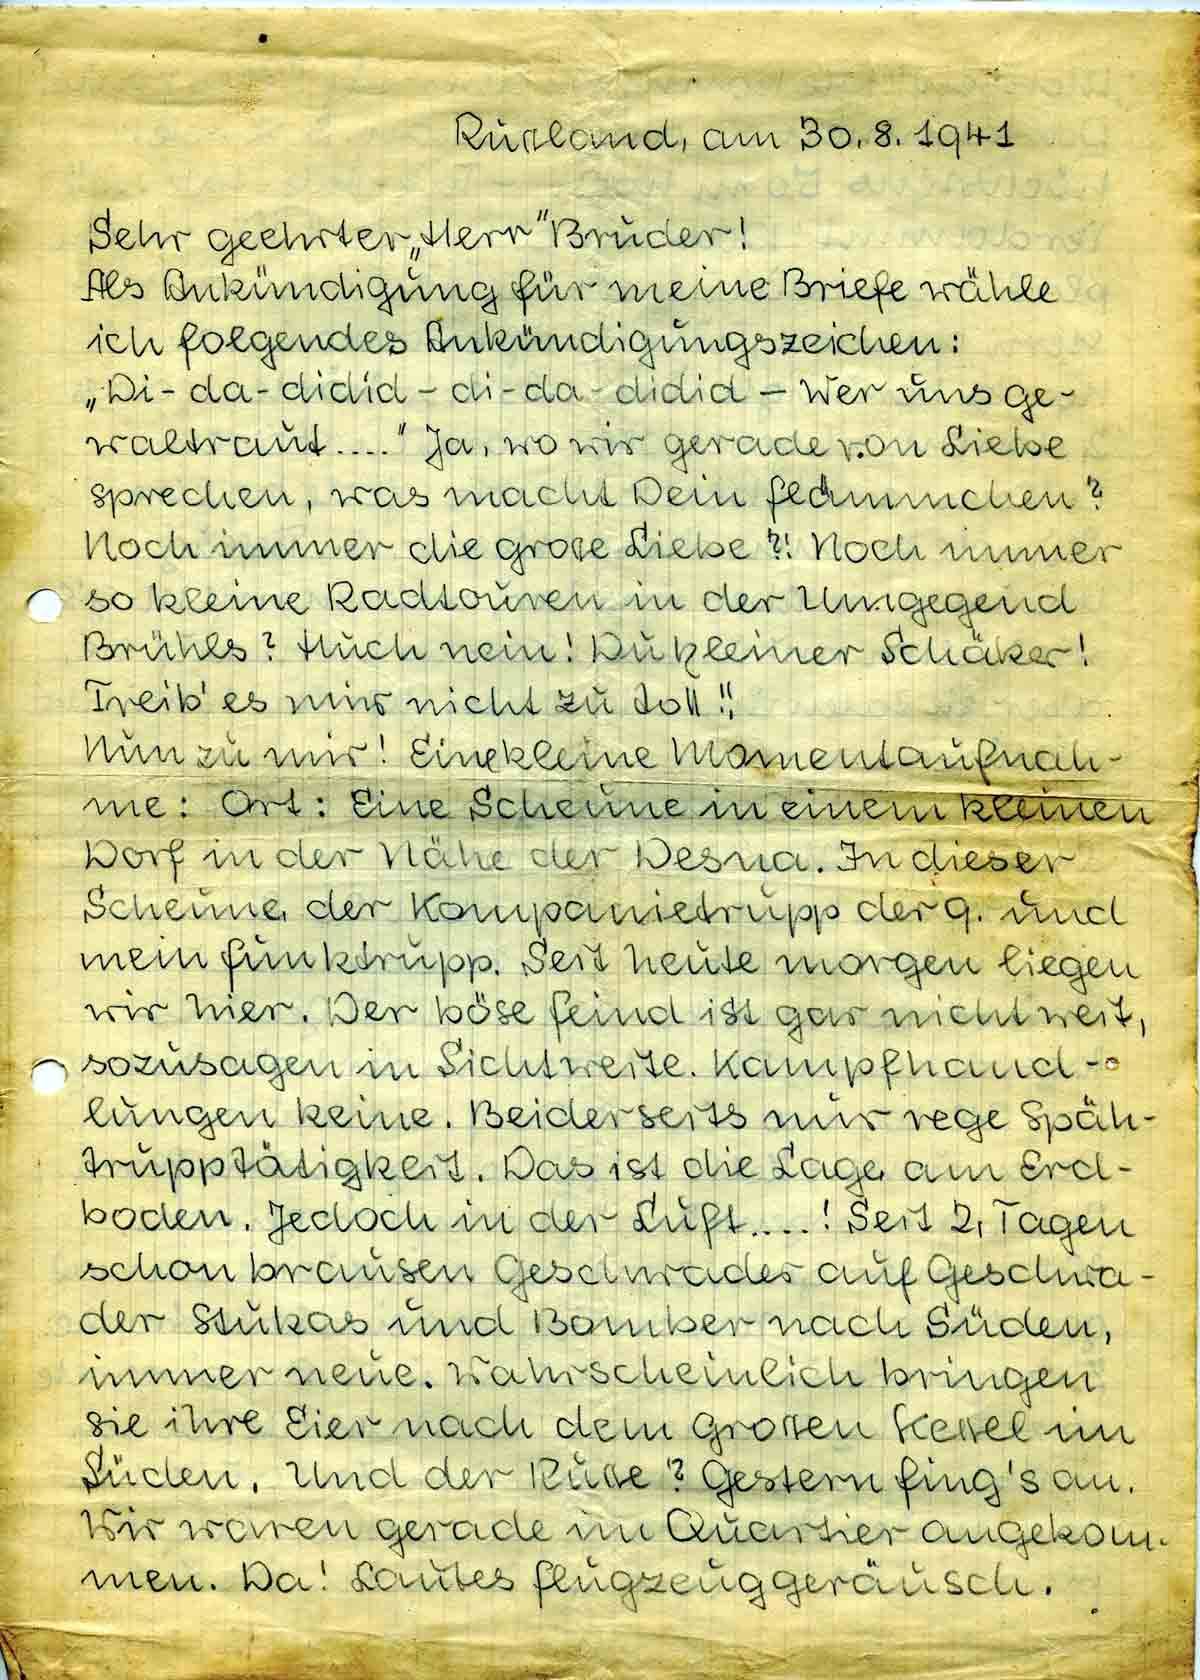 Rußland, am 30.8.1941
Sehr geehrter „Herr“ Bruder!
Als Ankündigung für meine Briefe wähle
ich folgendes Ankündigungszeichen:
„Di-da-didid-di-da-didid – Wer uns ge-
waltraut....“ Ja, wo wir gerade von Liebe
sprechen, was macht Dein Flämmchen?
Noch immer die große Liebe?! Noch immer
so kleine Radtouren in der Umgegend
Brühls? Huch nein! Du kleiner Schäker!
Treib' es mir nicht zu toll!!
Nun zu mir! Eine kleine Momentaufnah-
me: Ort: Eine Scheune in einem kleinen
Dorf in der Nähe der Desna. In dieser
Scheune, der Kompanietrupp der 9. und
mein Funktrupp. Seit heute morgen liegen
wir hier. Der böse Feind ist gar nicht weit,
sozusagen in Sichtweite. Kampfhand-
lungen keine. Beiderseits nur rege Späh-
trupptätigkeit. Das ist die Lage am Erd-
boden. Jedoch in der Luft....! Seit 2, Tagen
schon brausen Geschwader auf Geschwa-
der Stukas und Bomber nach Süden,
immer neue. Wahrscheinlich bringen
sie ihre Eier nach dem großen Kessel im
Süden. Und der Russe? Gestern fing's an.
Wir waren gerade im Quartier angekom-
men. Da! Lautes Flugzeuggeräusch.